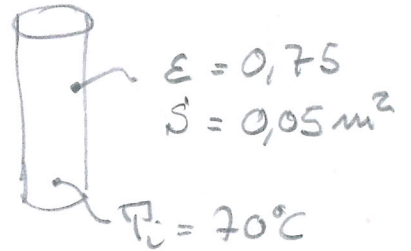 ε = 0,75
S = 0,05 m²
T_i = 70°C